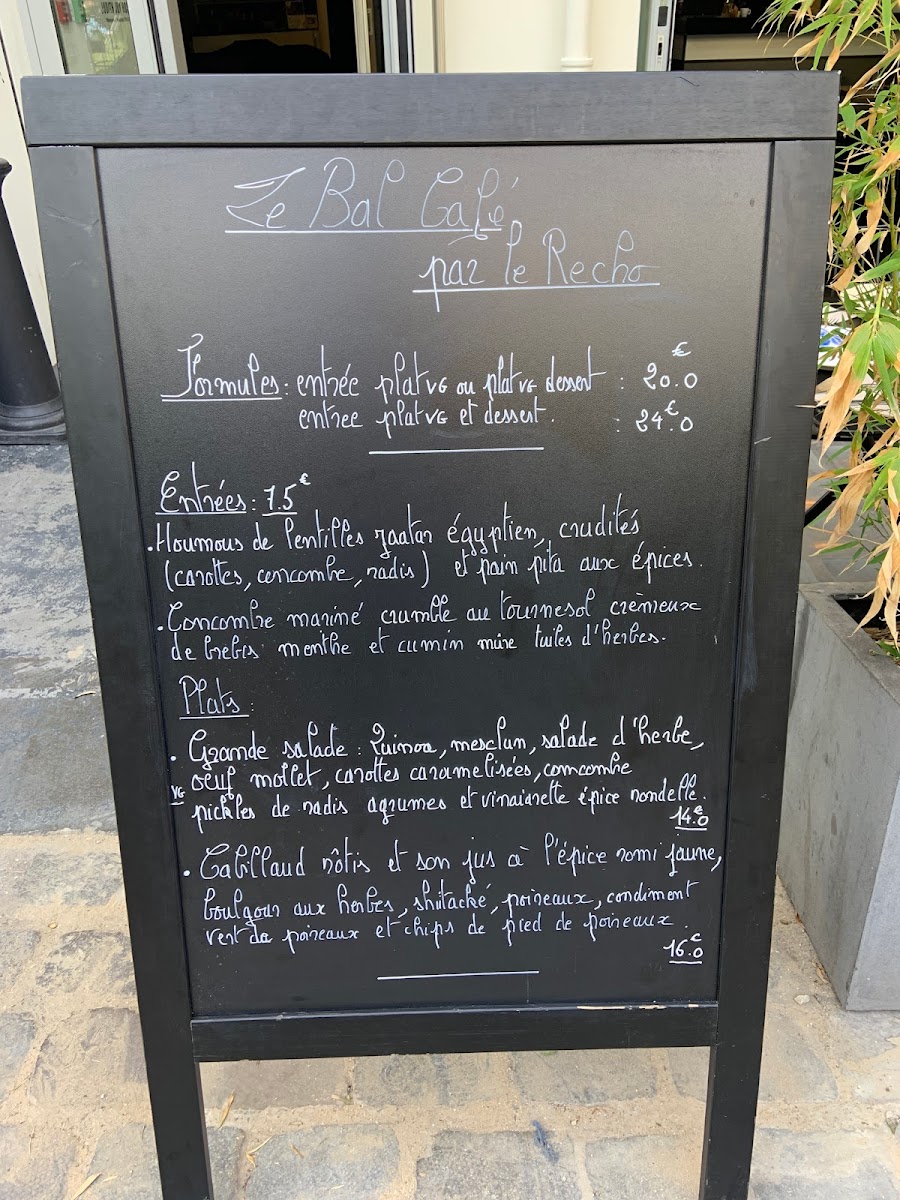 Le Bal Café
par le Recho
Formules : entrée plat VG ou plat VG dessert : 20.0 €
entree plat VG et dessert. : 24.0 €
Entrées : 7.5 €
• Houmous de lentilles zaatar égyptien, crudités
(carottes, concombre, radis) et pain pita aux épices.
• Concombre mariné crumble au tournesol crèmeux
de brebis menthe et cumin mûre tuiles d'herbes.
Plats :
• Grande salade : Quinoa, mesclun, salade d'herbe,
VG oeuf mollet, carottes caramelisées, comcombre
pickles de radis agrumes et vinaiarette épice rondelle.
14.0 €
• Cabillaud rôtis et son jus à l'épice romi jaune,
boulgour aux herbes, shitacké, poireaux, condiment
vert de poireaux et chips de pied de poireaux
16.0 €